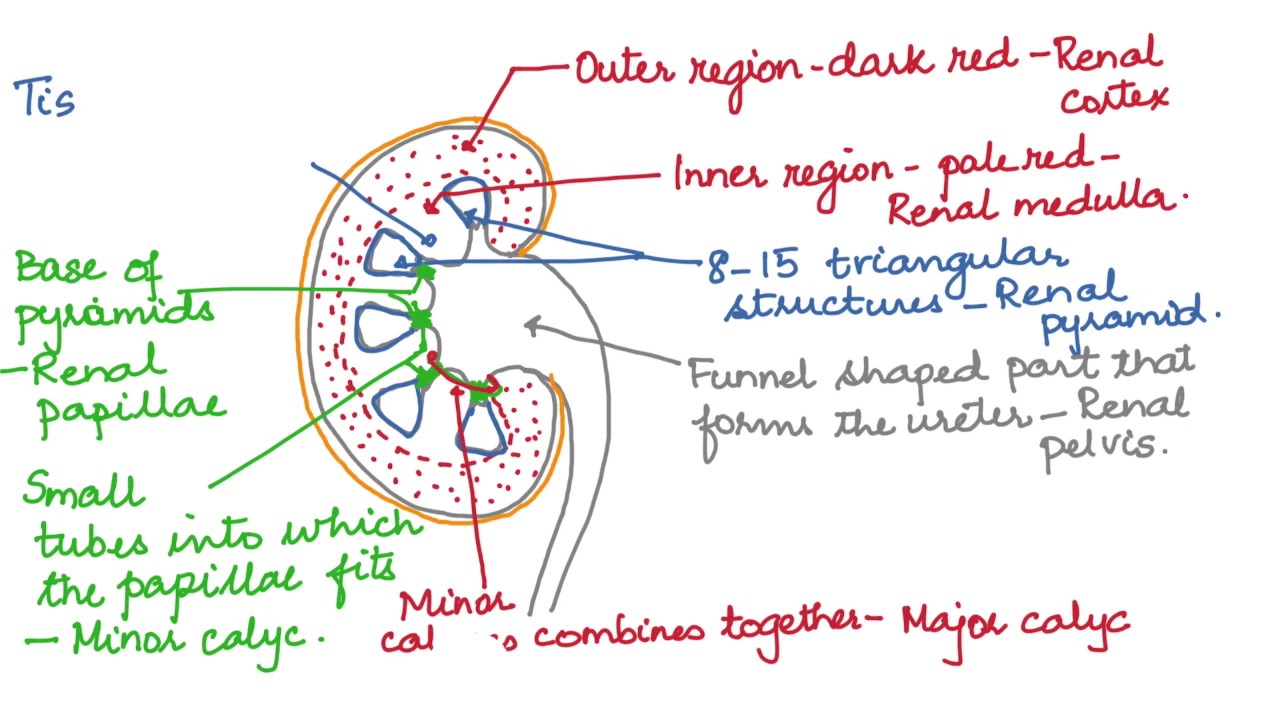 Tis
Outer region - dark red - Renal
cortex
Inner region - pale red -
Renal medulla.
8-15 triangular
structures - Renal
pyramid.
Funnel shaped part that
forms the ureter - Renal
pelvis.
Base of
pyramids
- Renal
papillae
Small
tubes into which
the papillae fits
- Minor calyc.
Minor
combines together - Major calyc